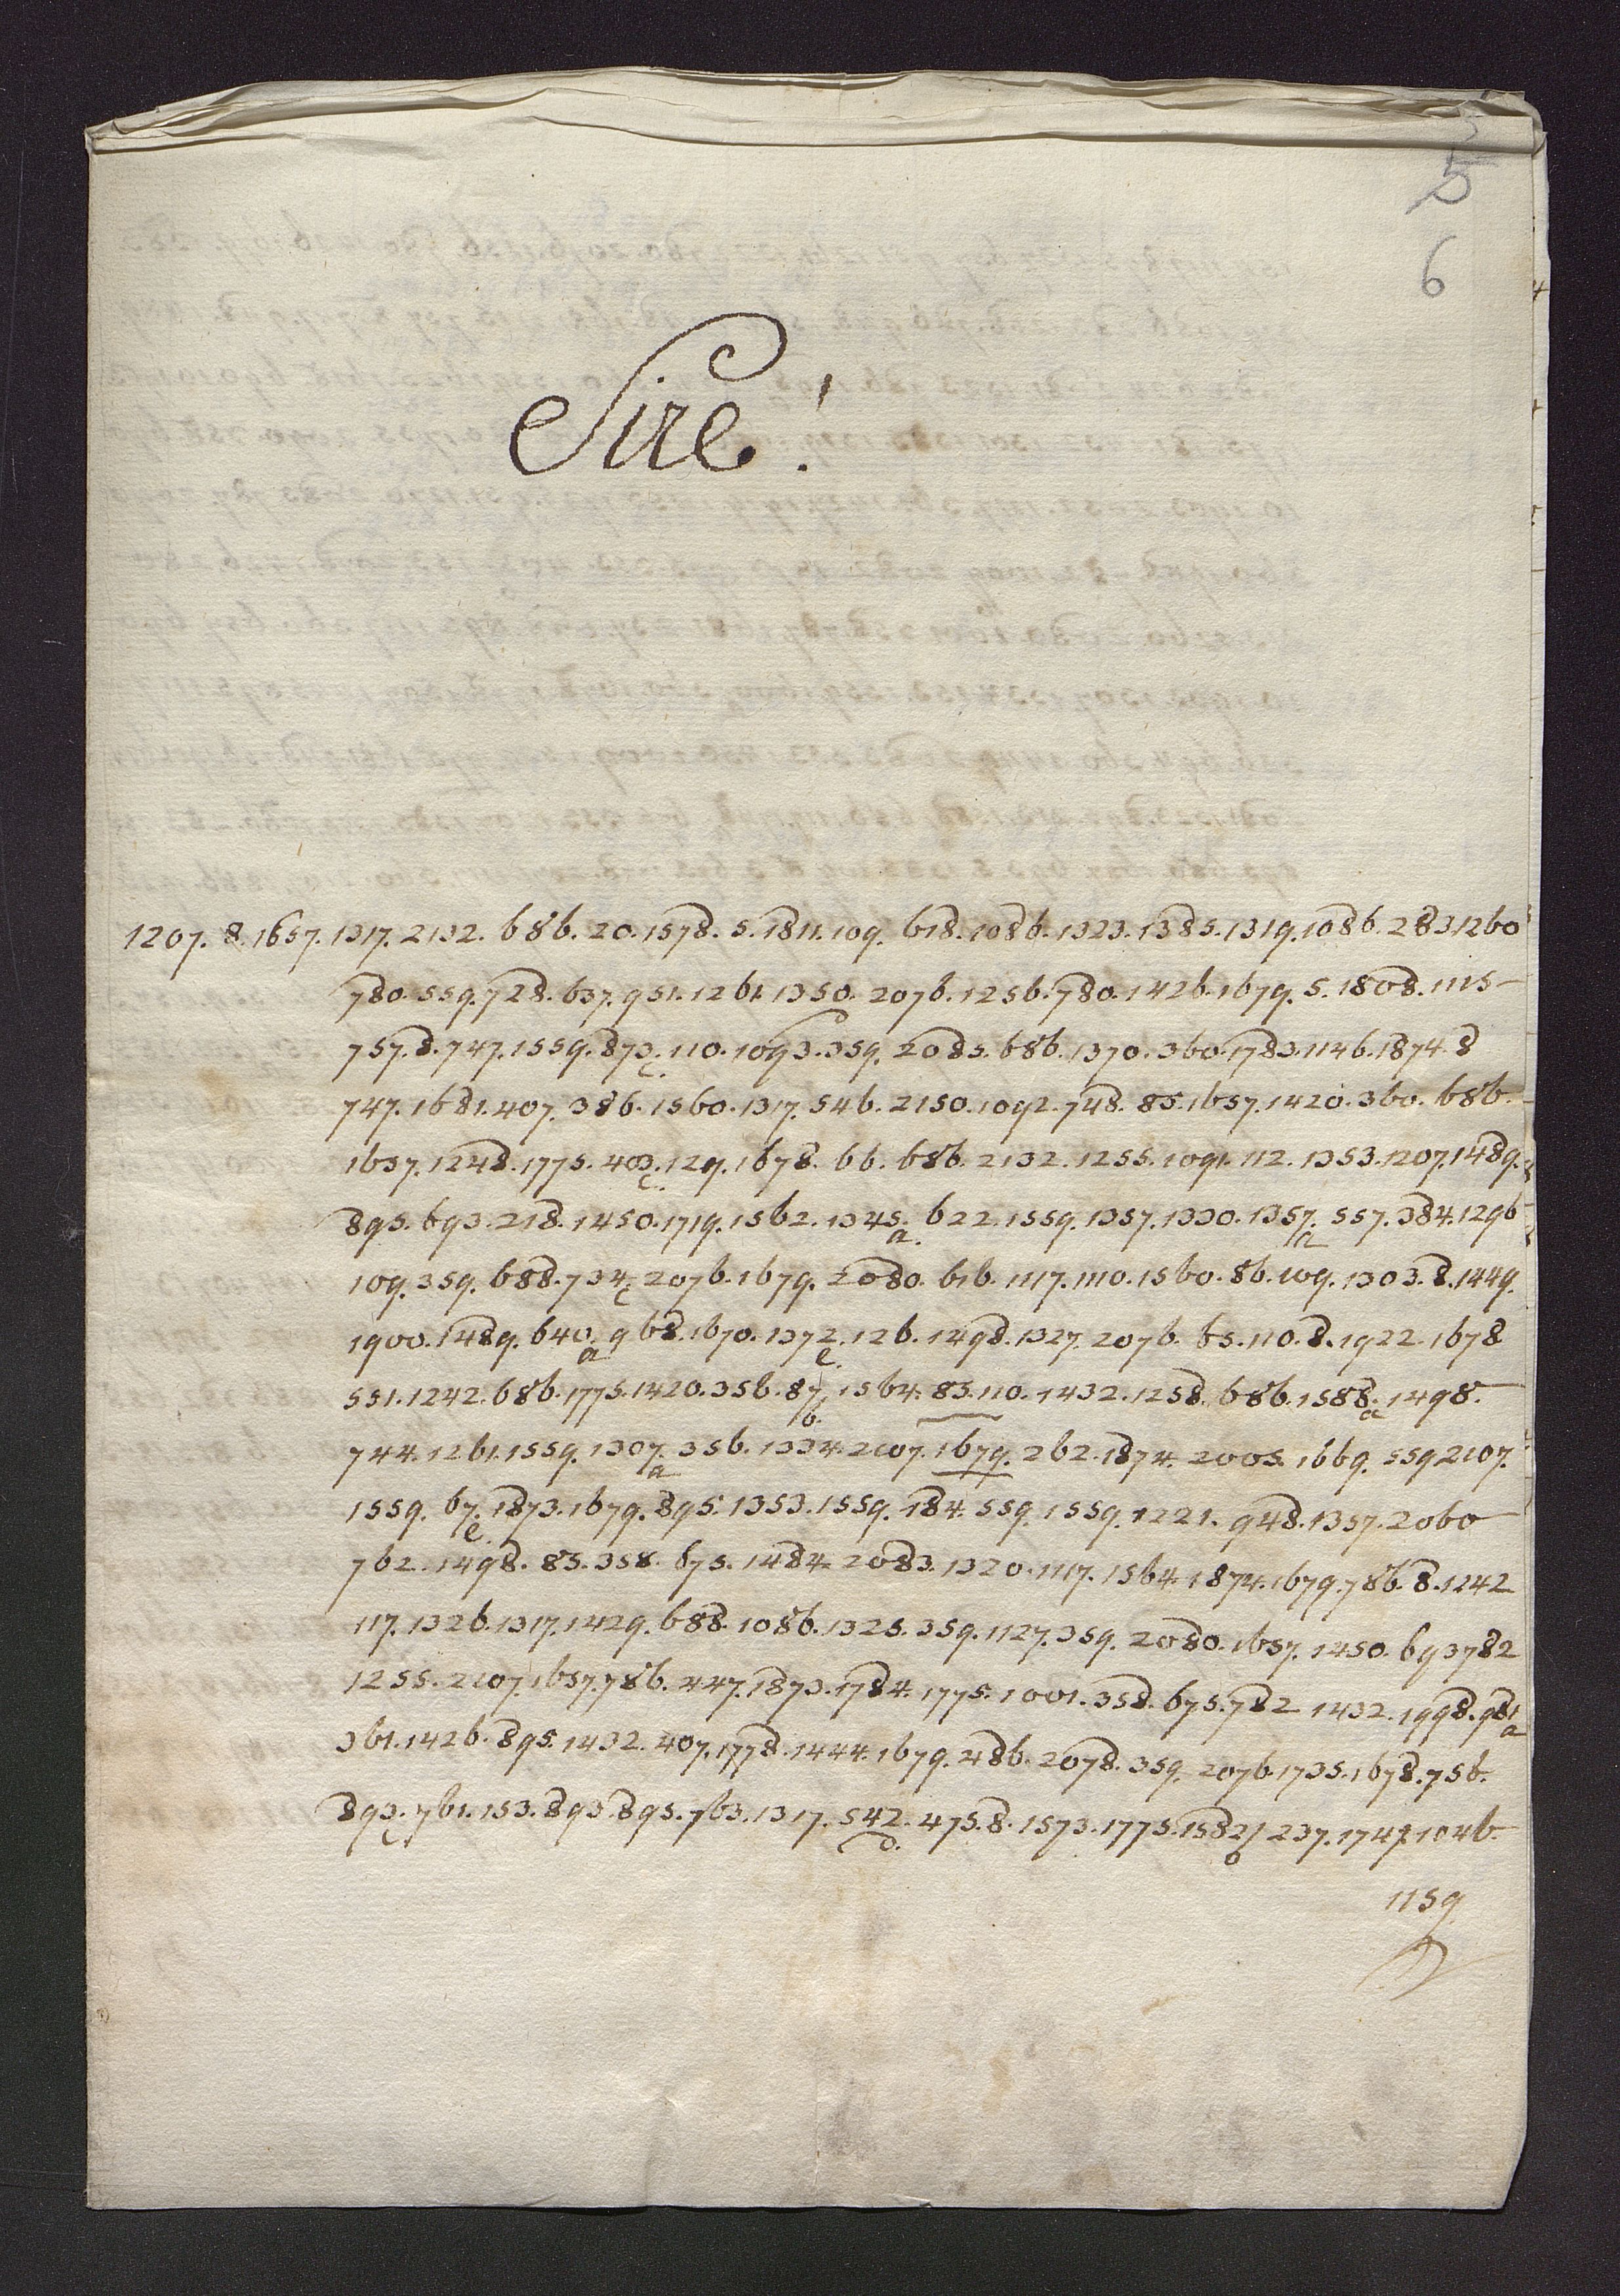 5
6
Sire!
1207. 8. 1657. 1317. 2132. 686. 20. 1578. 5. 1811. 109. 618. 1086. 1323. 1385. 1319. 1086. 283 1260
780. 559. 728. 637. 951. 1261. 1350. 2076. 1256. 780. 1426. 1679. 5. 1808. 1115
757. 8. 747. 1559. 873. 110. 1093. 359. 2085. 686. 1370. 360. 1783. 1146. 1874. 8
c
747. 1681. 407. 386. 1560. 1317. 546. 2150. 1092. 748. 85. 1657. 1420. 360. 686.
1637. 1248. 1775. 403. 129. 1678. 66. 686. 2132. 1255. 1091. 112. 1353. 1207. 1489.
c
895. 693. 218. 1450. 1719. 1562. 1345. 622. 1559. 1357. 1330. 1357. 557. 384. 1296
a. a
109. 359. 688. 734. 2076. 1679. 2080. 616. 1117. 1110. 1560. 86. 109. 1303. 8. 1449.
c
1900. 1489. 640. 968. 1670. 1372. 126. 1498. 1327. 2076. 65. 110. 8. 1922. 1678
a e
551. 1242. 686. 1775. 1420. 356. 87. 1564. 85. 110. 1432. 1258. 686. 1588. 1498.
b. a
744. 1261. 1559. 1307. 356. 1334. 2107. 1679. 262. 1874. 2005. 1669. 559 2107.
a
1559. 67. 1873. 1679. 895. 1353. 1559. 184. 559. 1559. 1221. 948. 1357. 2060
e
762. 1498. 85. 358. 675. 1484. 2083. 1320. 1117. 1564. 1874. 1679. 786. 8. 1242
117. 1326. 1317. 1429. 688. 1086. 1325. 359. 1127. 359. 2080. 1657. 1450. 693 782
1255. 2107. 1657. 786. 447. 1873. 1784. 1775. 1001. 358. 675. 782 1432. 1998. 981
a
361. 1426. 895. 1432. 407. 1778. 1444. 1679. 486. 2078. 359. 2076. 1735. 1678. 756.
893. 761. 153. 893. 895. 763. 1317. 542. 475. 8. 1573. 1775. 1582 237. 1747. 1046.
c d. b
1159